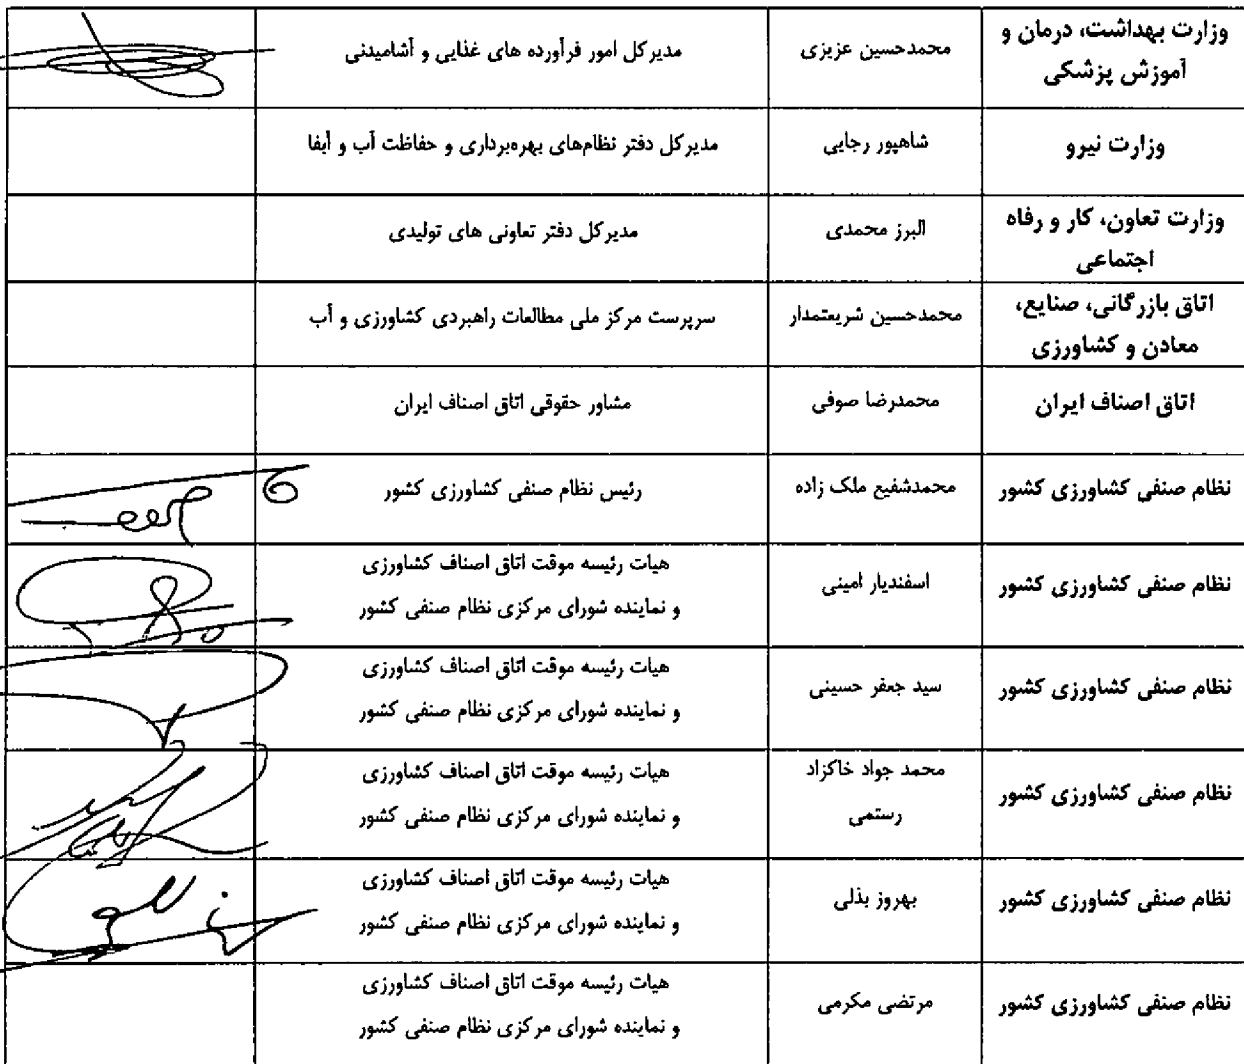 وزارت بهداشت، درمان و
آموزش پزشکی
محمدحسین عزیزی
مدیرکل امور فرآورده های غذایی و آشامیدنی
وزارت نیرو
شاهپور رجایی
مدیرکل دفتر نظام‌های بهره‌برداری و حفاظت آب و آبفا
وزارت تعاون، کار و رفاه
اجتماعی
البرز محمدی
مدیرکل دفتر تعاونی های تولیدی
اتاق بازرگانی، صنایع،
معادن و کشاورزی
محمدحسین شریعتمدار
سرپرست مرکز ملی مطالعات راهبردی کشاورزی و آب
اتاق اصناف ایران
محمدرضا صوفی
مشاور حقوقی اتاق اصناف ایران
نظام صنفی کشاورزی کشور
محمدشفیع ملک زاده
رئیس نظام صنفی کشاورزی کشور
نظام صنفی کشاورزی کشور
اسفندیار امینی
هیات رئیسه موقت اتاق اصناف کشاورزی
و نماینده شورای مرکزی نظام صنفی کشور
نظام صنفی کشاورزی کشور
سید جعفر حسینی
هیات رئیسه موقت اتاق اصناف کشاورزی
و نماینده شورای مرکزی نظام صنفی کشور
نظام صنفی کشاورزی کشور
محمد جواد خاکزاد
رستمی
هیات رئیسه موقت اتاق اصناف کشاورزی
و نماینده شورای مرکزی نظام صنفی کشور
نظام صنفی کشاورزی کشور
بهروز بذلی
هیات رئیسه موقت اتاق اصناف کشاورزی
و نماینده شورای مرکزی نظام صنفی کشور
نظام صنفی کشاورزی کشور
مرتضی مکرمی
هیات رئیسه موقت اتاق اصناف کشاورزی
و نماینده شورای مرکزی نظام صنفی کشور